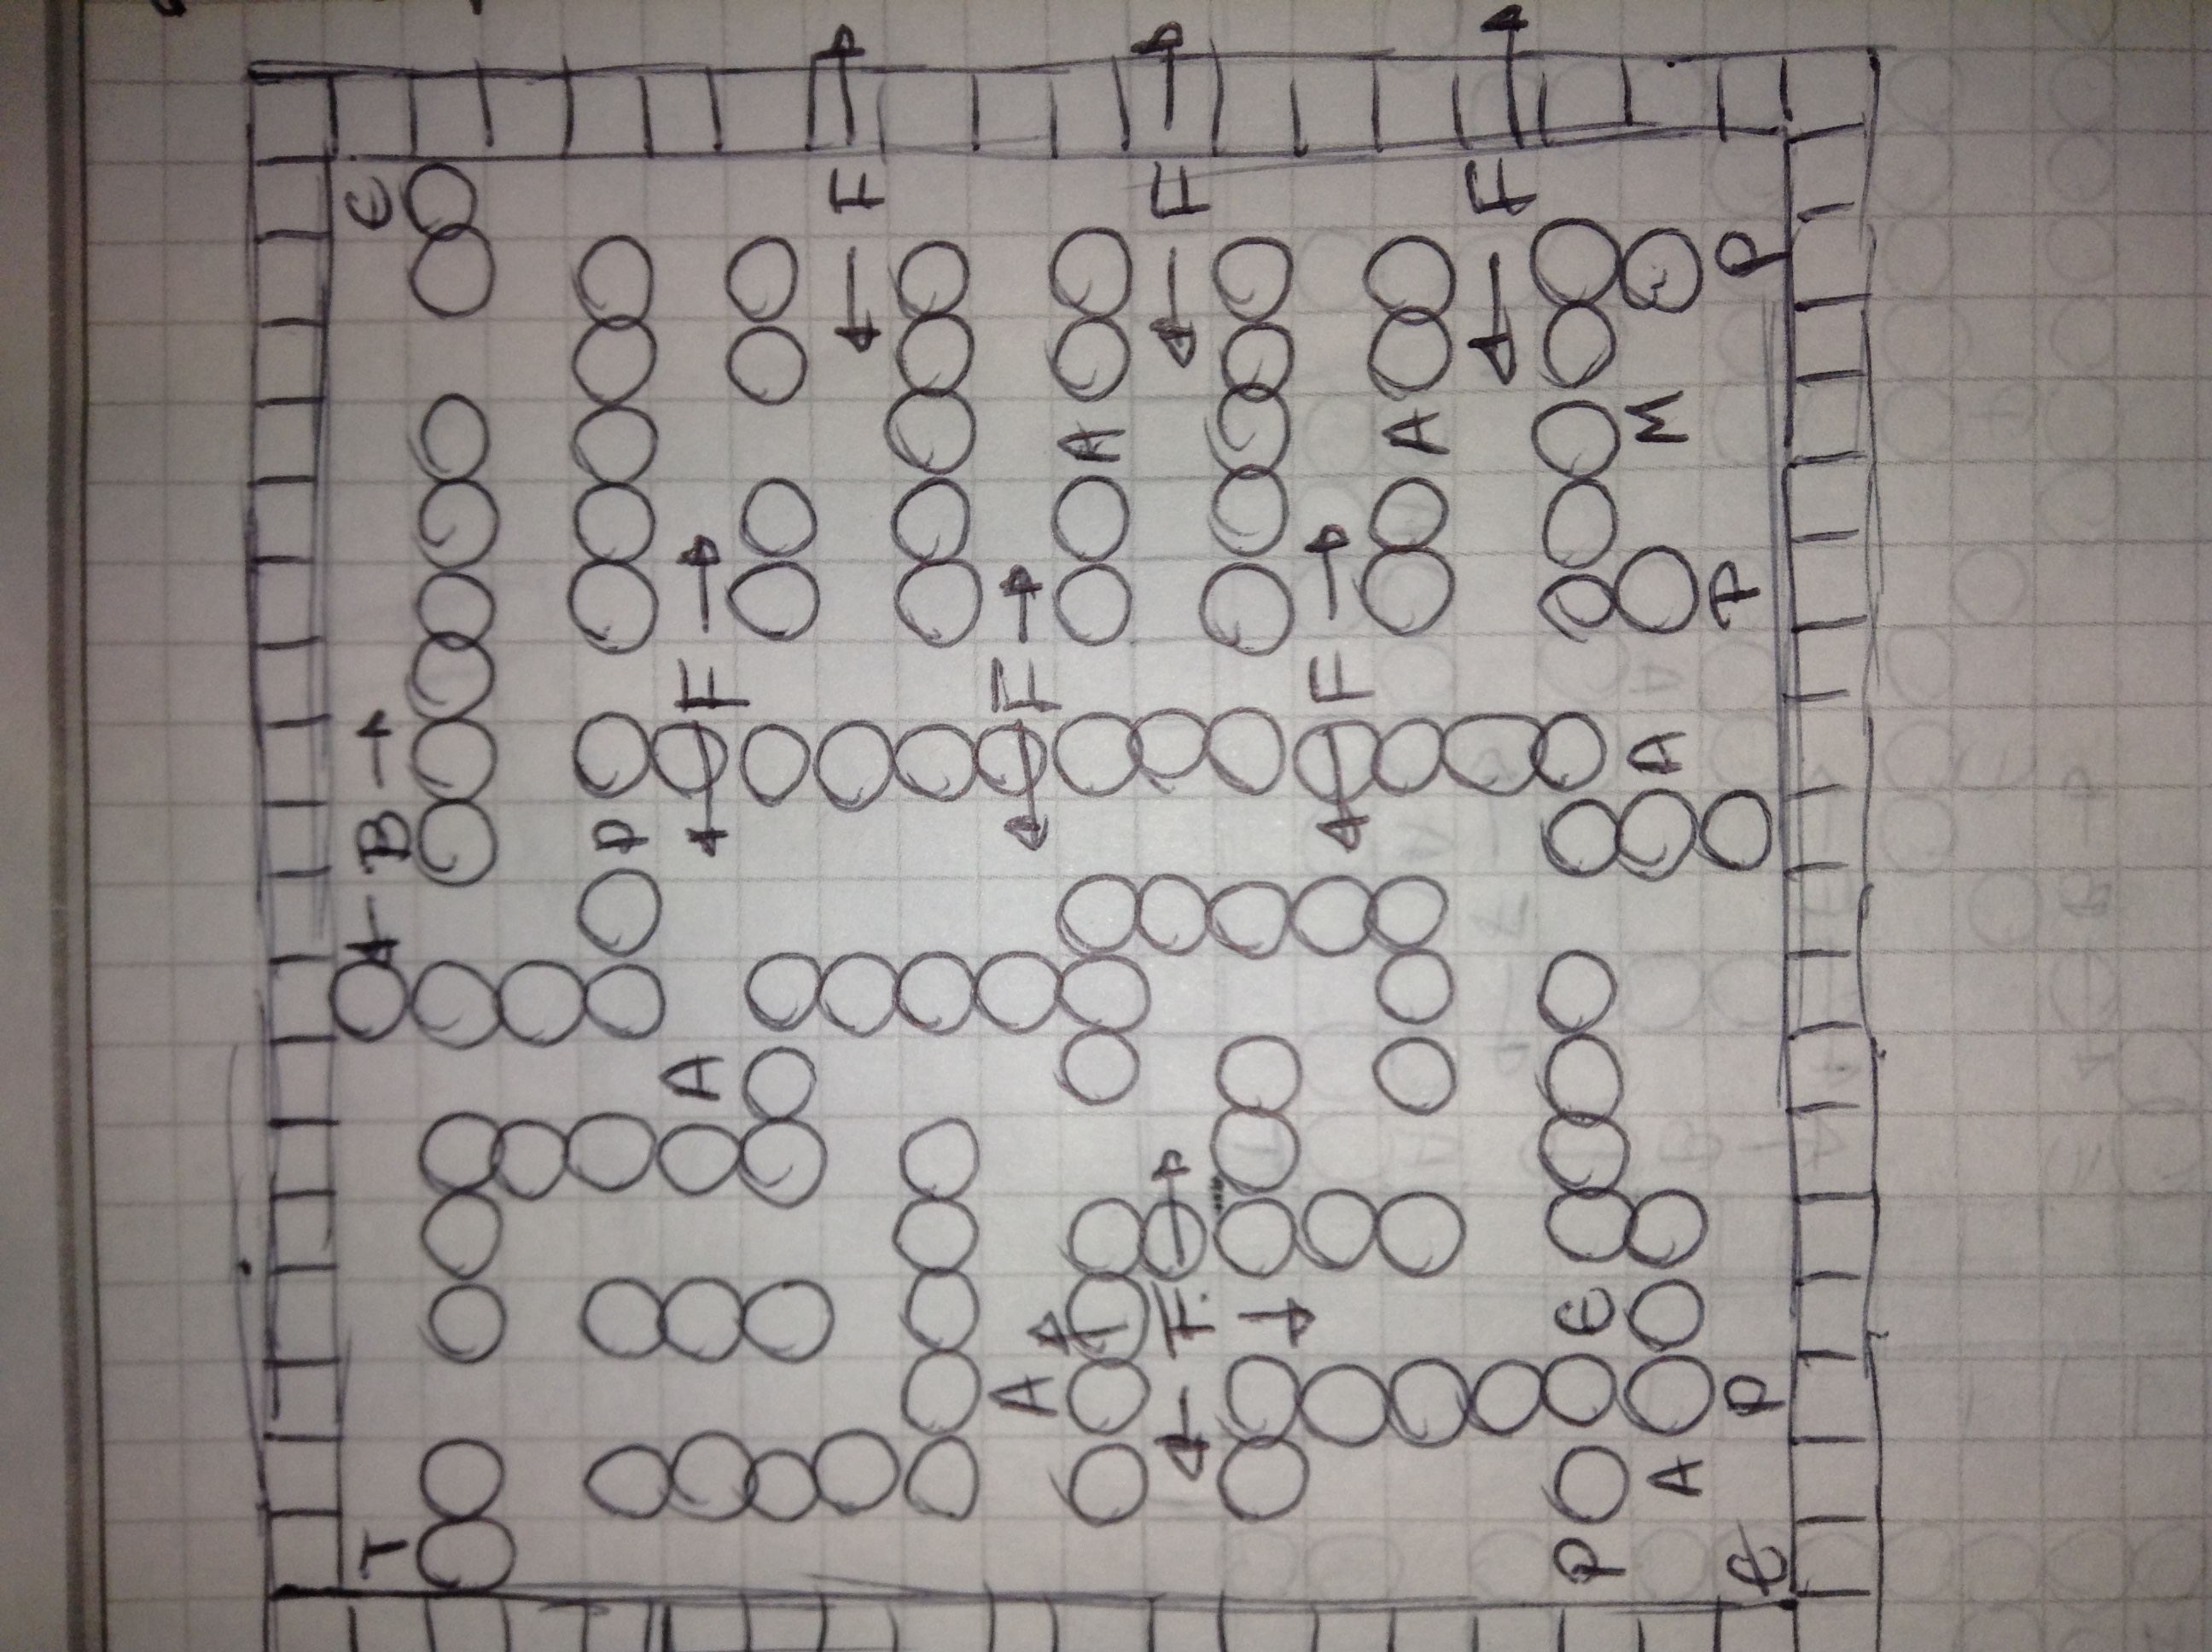 T B E
P
A F
F
A
F
A A
F. F
F
A
F
P E
A A M
E P P P